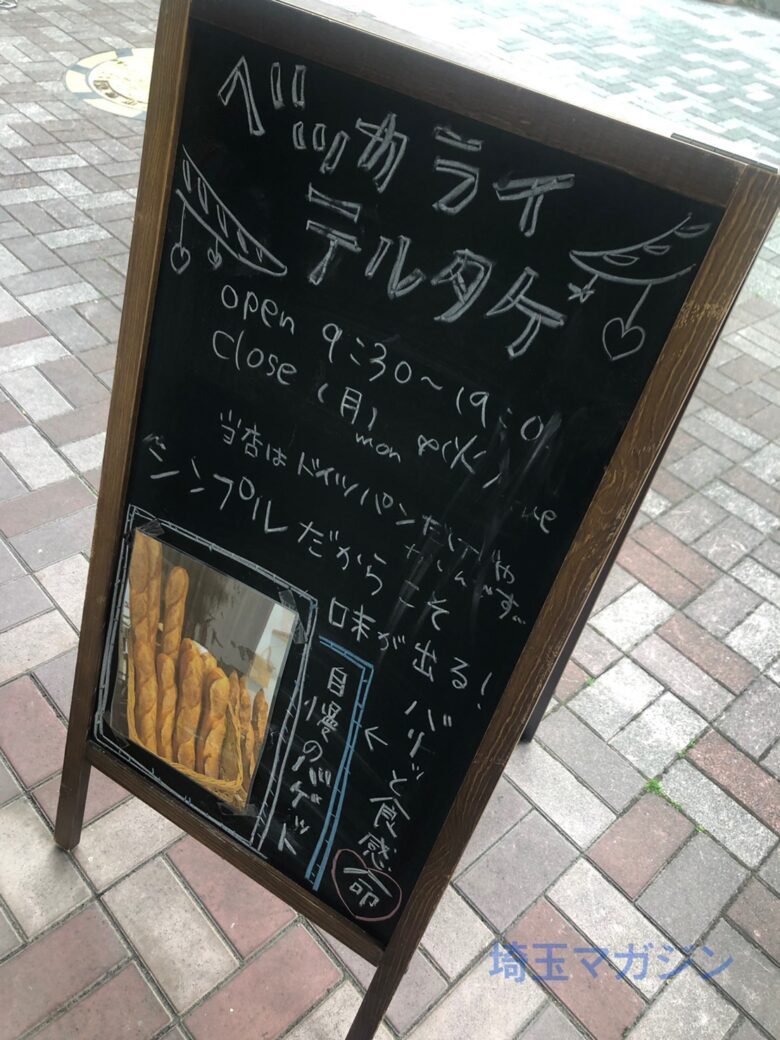 ベッカライ
テルタケ
open 9:30~19:0
close (月) mon (火)
当店はドイツパンだけじゃ
シンプルだからこそ
味が出る!
自慢のバゲット
←
パリッと食感命
埼玉マガジン